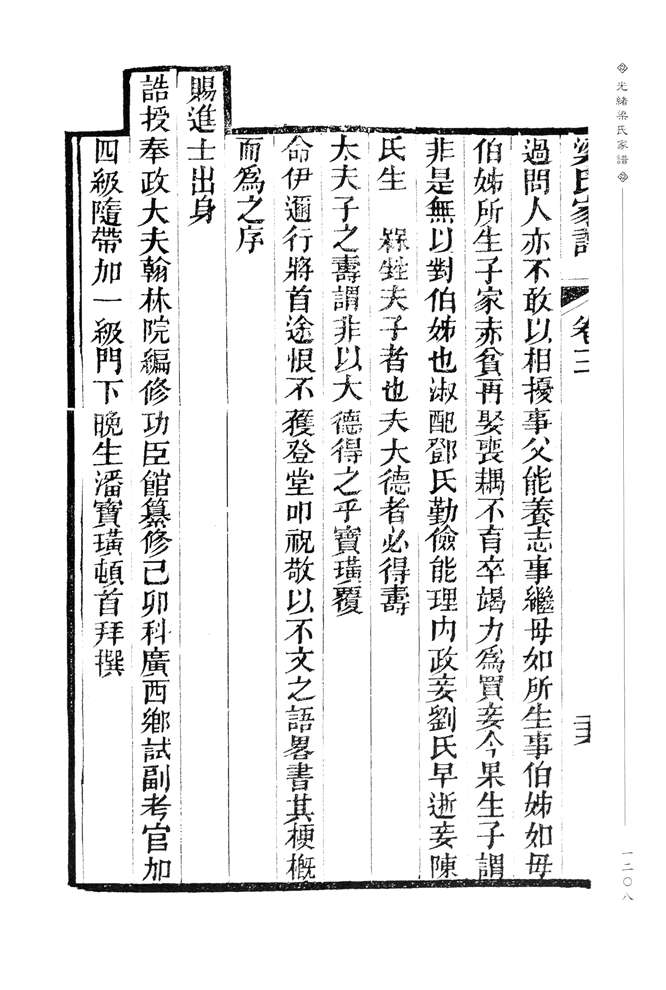 光緒梁氏家譜
一二〇八
梁氏家譜 卷三
過問人亦不敢以相擾事父能養志事繼母如所生事伯姊如母
伯姊所生子家赤貧再娶喪耦不育卒竭力爲買妾今果生子謂
非是無以對伯姊也淑配鄧氏勤儉能理內政妾劉氏早逝妾陳
氏生 夫子者也夫大德者必得壽
太夫子之壽謂非以大德得之乎寶璜覆
命伊邇行將首途恨不獲登堂叩祝敬以不文之語畧書其梗槪
而爲之序
賜進士出身
誥授奉政大夫翰林院編修功臣館纂修己卯科廣西鄕試副考官加
四級隨帶加一級門下晚生潘寶璜頓首拜撰